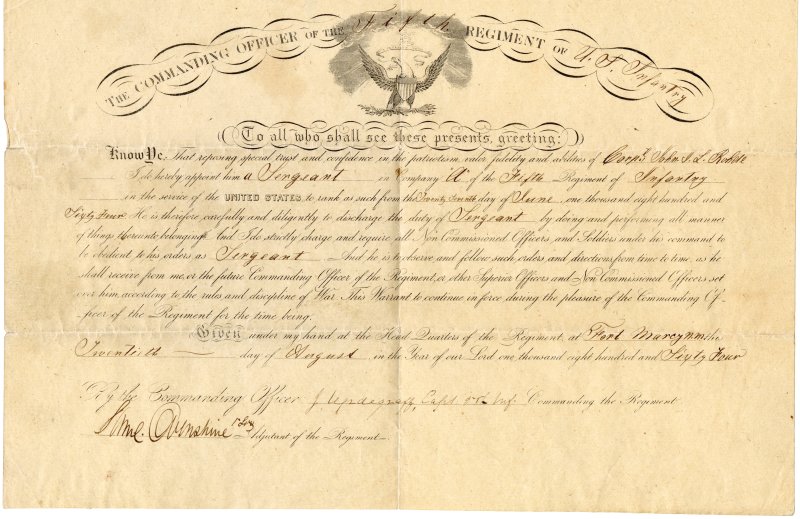 THE COMMANDING OFFICER OF THE Fifth REGIMENT OF U.S. Infantry
To all who shall see these presents, greeting:
Know Ye, That reposing special trust and confidence in the patriotism, valor, fidelity and abilities of Corpl. John
I do hereby appoint him a Sergeant in Company A of the Fifth Regiment of Infantry
in the service of the UNITED STATES, to rank as such from the Twenty Seventh day of June, one thousand eight hundred and
Sixty Four He is therefore, carefully and diligently to discharge the duty of Sergeant by doing and performing all manner
of things thereunto belonging. And I do strictly charge and require all Non Commissioned Officers and Soldiers under his command to
be obedient to his orders as Sergeant And he is to observe and follow such orders and directions from time to time, as he
shall receive from me, or the future Commanding Officer of the Regiment, or other Superior Officers and Non Commissioned Officers set
over him, according to the rules and discipline of War. This Warrant to continue in force during the pleasure of the Commanding Of-
ficer of the Regiment for the time being.
Given under my hand at the Head Quarters of the Regiment, at Fort Marcy N.M. the
Twentieth day of August in the Year of our Lord, one thousand eight hundred and Sixty Four
By the Commanding Officer J Updegraff, Capt 5th Inf Commanding the Regiment.
Adjutant of the Regiment.